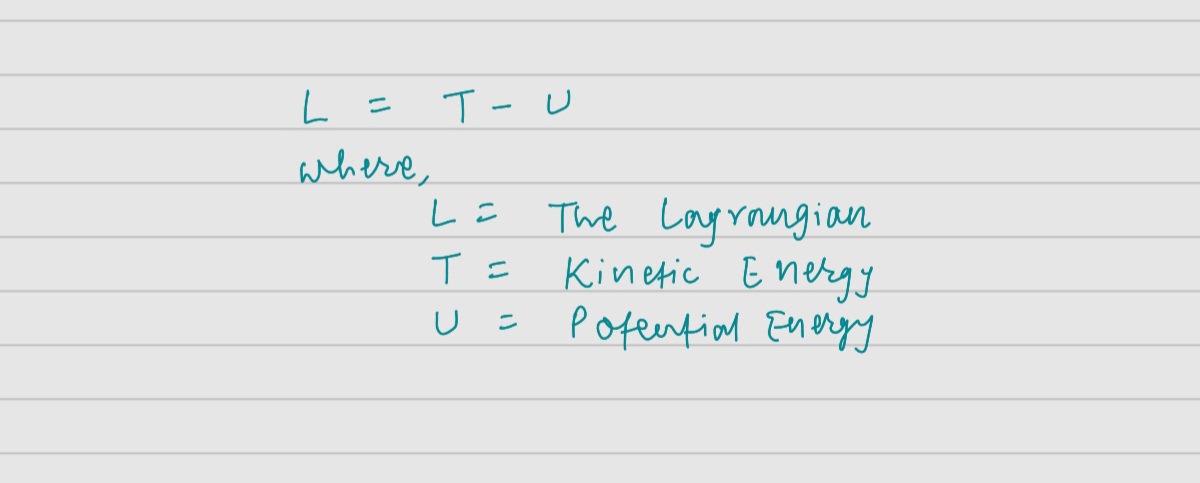 L = T - U
where,
L = The Lagrangian
T = Kinetic Energy
U = Potential Energy